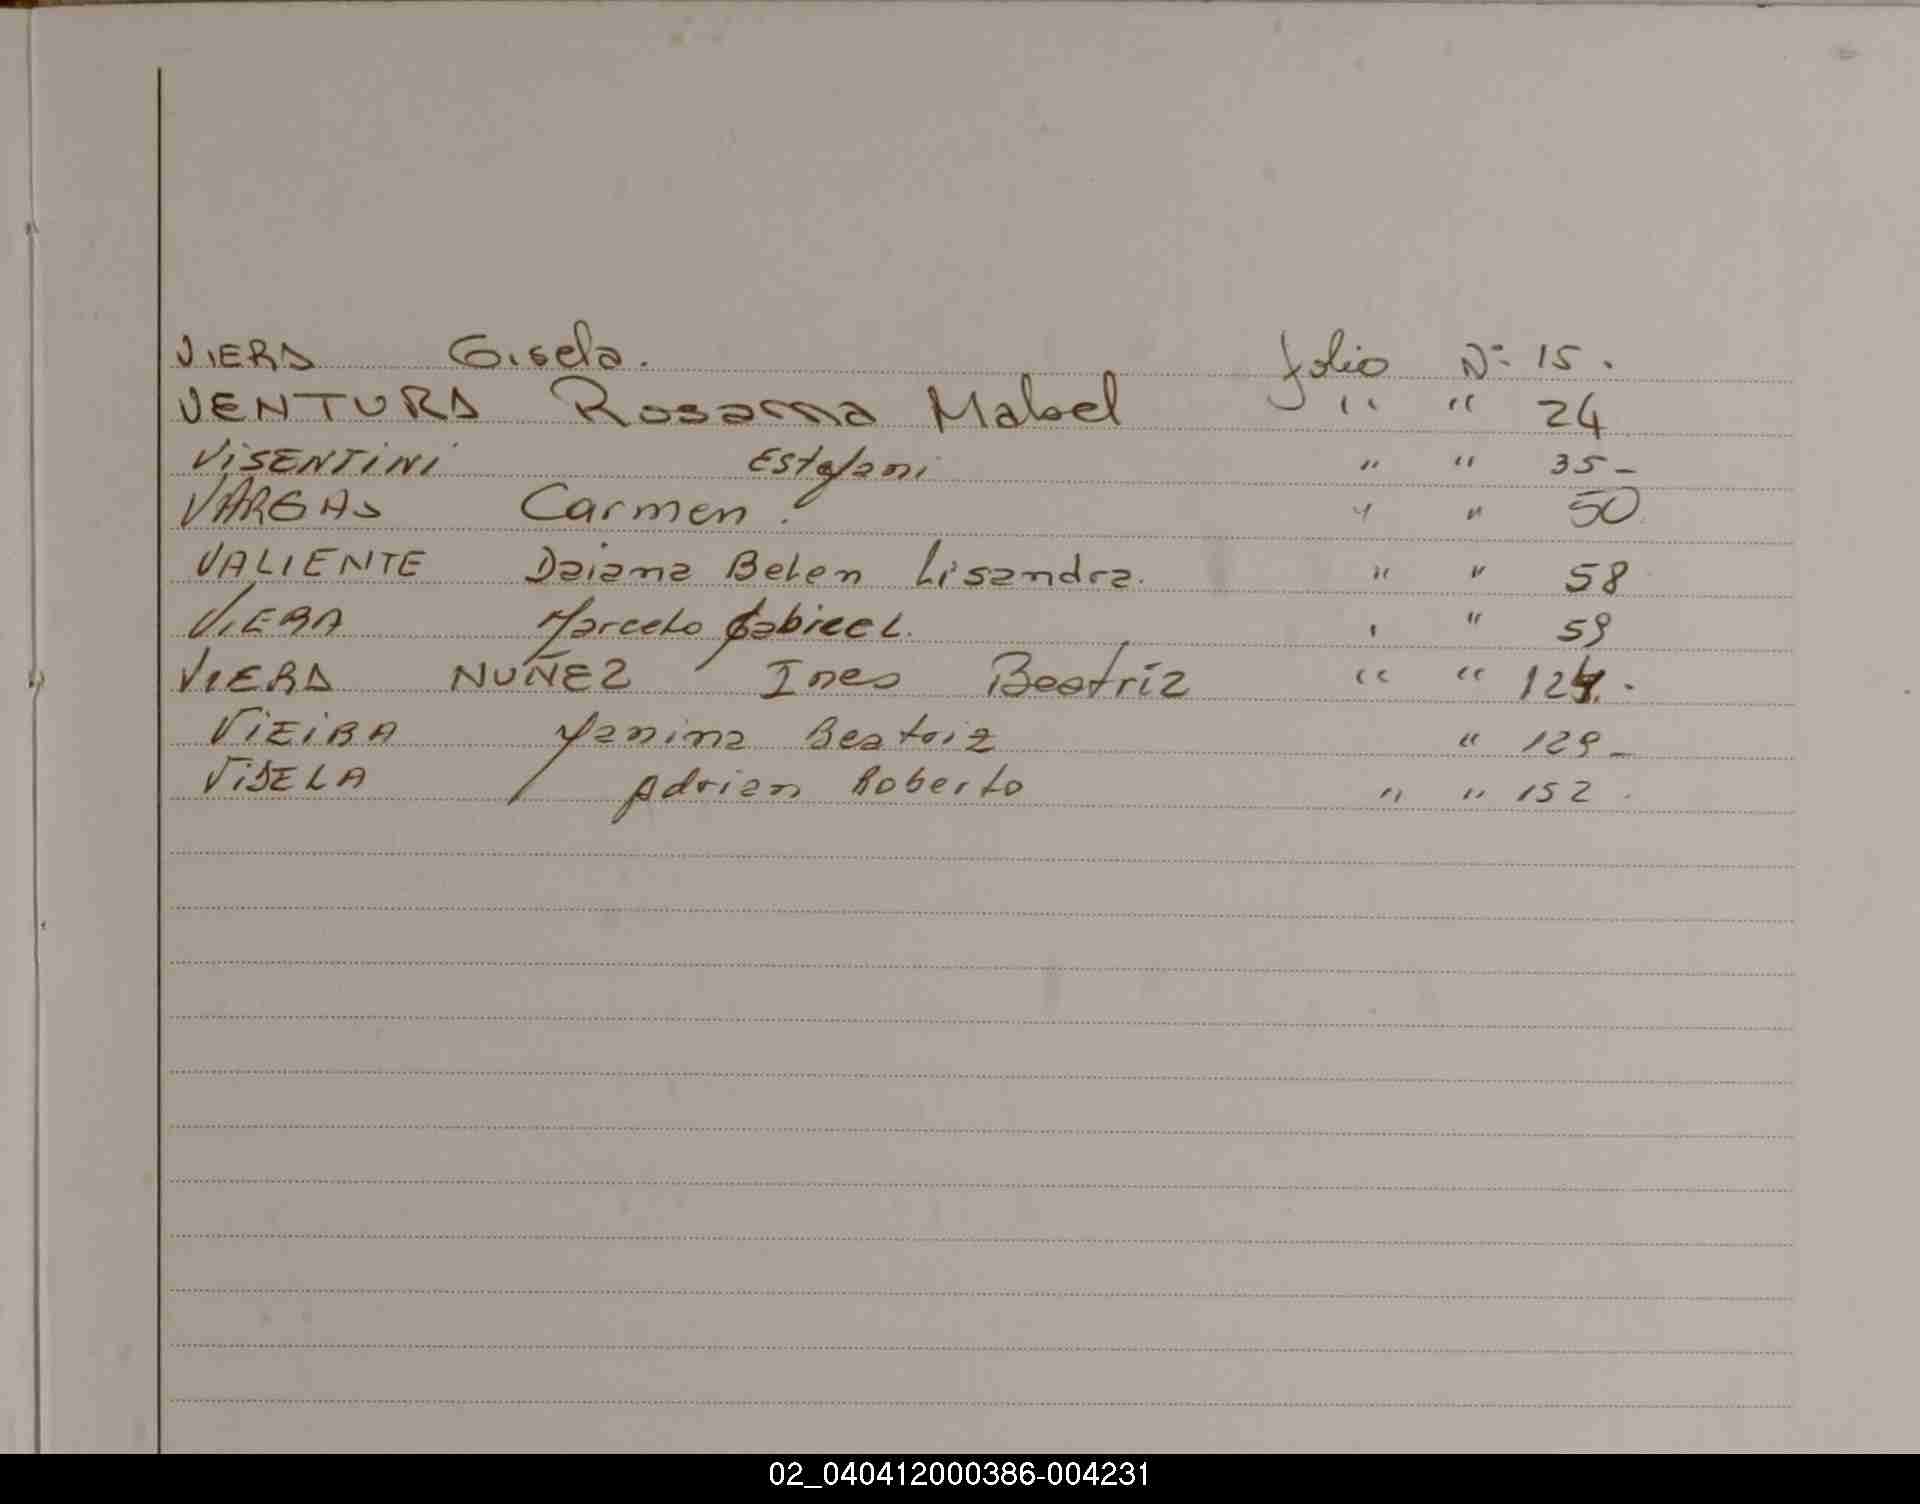 VIERA Gisela. folio Nº 15.
VENTURA Rosanna Mabel " " 24
VISENTINI Estefani " " 35-
VARGAS Carmen. " " 50
VALIENTE Daiana Belen Lisandra. " " 58
VIERA Marcelo Gabriel. " " 59
VIERA NUÑEZ Ines Beatriz " " 124.-
VIEIRA Yanina Beatriz " 129-
Adrian Roberto " " 152.
02_040412000386-004231